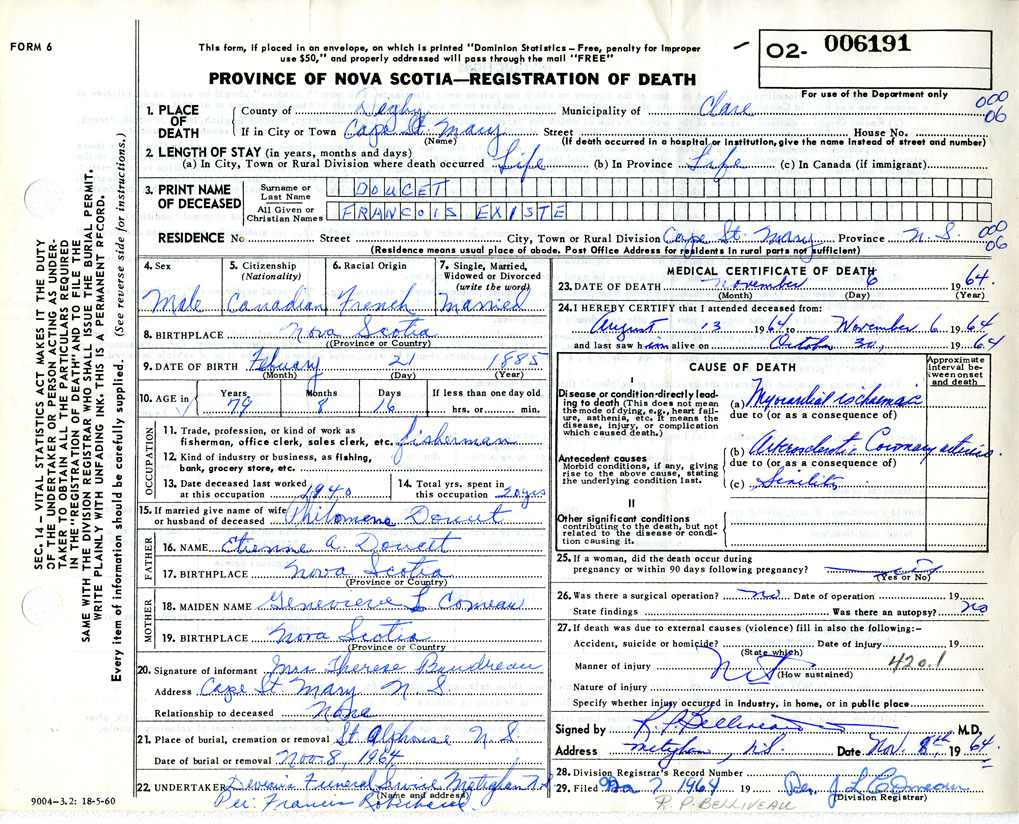 FORM 6
This form, if placed in an envelope, on which is printed "Dominion Statistics – Free, penalty for improper
use $50," and properly addressed will pass through the mail "FREE"
O2- 006191
For use of the Department only
PROVINCE OF NOVA SCOTIA—REGISTRATION OF DEATH
000
06
1. PLACE OF DEATH
County of Degby Municipality of Clare
If in City or Town Cape St. Mary Street House No.
(Name) (If death occurred in a hospital or institution, give the name instead of street and number)
2. LENGTH OF STAY (in years, months and days)
(a) In City, Town or Rural Division where death occurred Life (b) In Province Life (c) In Canada (if immigrant)
3. PRINT NAME OF DECEASED
Surname or Last Name DOUCET
All Given or Christian Names FRANCOIS EXISTE
RESIDENCE No Street City, Town or Rural Division Cape St. Mary Province N.S.
000
06
(Residence means usual place of abode. Post Office Address for residents in rural parts not sufficient)
SEC. 14 – VITAL STATISTICS ACT MAKES IT THE DUTY
OF THE UNDERTAKER OR PERSON ACTING AS UNDER-
TAKER TO OBTAIN ALL THE PARTICULARS REQUIRED
IN THE "REGISTRATION OF DEATH" AND TO FILE THE
SAME WITH THE DIVISION REGISTRAR WHO SHALL ISSUE THE BURIAL PERMIT.
WRITE PLAINLY WITH UNFADING INK. THIS IS A PERMANENT RECORD.
Every item of information should be carefully supplied. (See reverse side for instructions.)
4. Sex Male
5. Citizenship (Nationality) Canadian
6. Racial Origin French
7. Single, Married, Widowed or Divorced (write the word) Married
8. BIRTHPLACE Nova Scotia
(Province or Country)
9. DATE OF BIRTH Febuary 21 1885
(Month) (Day) (Year)
10. AGE in Years 79 Months 8 Days 16 If less than one day old hrs. or min.
OCCUPATION
11. Trade, profession, or kind of work as
fisherman, office clerk, sales clerk, etc. fisherman
12. Kind of industry or business, as fishing,
bank, grocery store, etc.
13. Date deceased last worked at this occupation 1940
14. Total yrs. spent in this occupation 20 yrs
15. If married give name of wife or husband of deceased Philomene Doucet
FATHER
16. NAME Etienne A. Doucett
17. BIRTHPLACE Nova Scotia
(Province or Country)
MOTHER
18. MAIDEN NAME Genevieve L Comeau
19. BIRTHPLACE Nova Scotia
(Province or Country
20. Signature of informant Mrs Therese Boudreau
Address Cape St. Mary N.S.
Relationship to deceased None
21. Place of burial, cremation or removal St. Alphonse N.S.
Date of burial or removal Nov. 8, 1964
22. UNDERTAKER Funeral Service Meteghan N.S
(Name and address)
Per: Francis
9004–3.2: 18-5-60
MEDICAL CERTIFICATE OF DEATH
23. DATE OF DEATH November 6 1964
(Month) (Day) (Year)
24. I HEREBY CERTIFY that I attended deceased from:
August 13 1964 to November 6 1964
and last saw him alive on October 30, 1964
CAUSE OF DEATH
Approximate interval between onset and death
I
Disease or condition directly lead-
ing to death (This does not mean
the mode of dying, e.g., heart fail-
ure, asthenia, etc. It means the
disease, injury, or complication
which caused death.)
(a) Myocardial ischaemia
due to (or as a consequence of)
Antecedent causes
Morbid conditions, if any, giving
rise to the above cause, stating
the underlying condition last.
(b) Arteriosclerotic Coronary
due to (or as a consequence of)
(c) Senility
II
Other significant conditions
contributing to the death, but not
related to the disease or condi-
tion causing it.
25. If a woman, did the death occur during
pregnancy or within 90 days following pregnancy?
(Yes or No)
26. Was there a surgical operation? no Date of operation 19
State findings Was there an autopsy? no
27. If death was due to external causes (violence) fill in also the following:–
Accident, suicide or homicide? Date of injury 19
(State which)
Manner of injury 420.1
(How sustained)
Nature of injury
Specify whether injury occurred in industry, in home, or in public place
Signed by R. P. Belliveau M.D.
Address Meteghan, N.S. Date Nov. 8th 1964
28. Division Registrar's Record Number
29. Filed 7 1964 19 J L Comeau
(Division Registrar)
R. P. BELLIVEAU